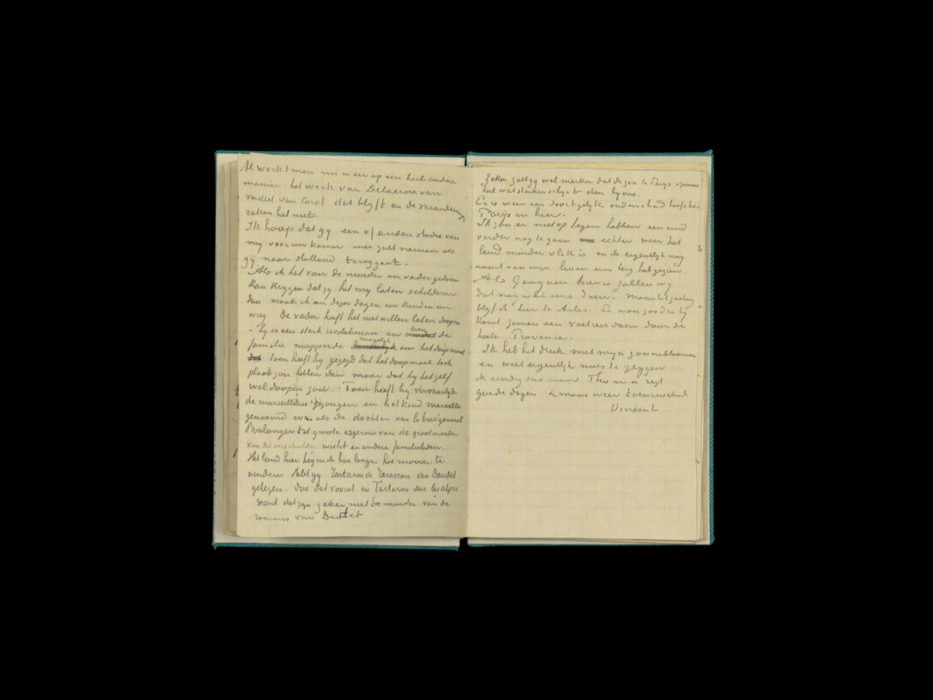 Al werkt men nu weer op een heel andere
manier. het werk van Delacroix van
van Corot dat blijft en de verandering
raken het niet.
Ik hoop dat gy een of andere studie van
my voor uw kamer mee zult nemen als
gij naar Holland teruggaat.
Als ik het van de moeder en vader gedaan
kan krygen dat zy het my laten schilderen
dan maak ik een dezer dagen een kind in een
wieg De vader heeft het niet willen laten doopen
– hy is een sterk revolutionair en toen de
familie mopperde mogelyk om het doopmaal
toen heeft hy gezegd dat het doopmaal toch
plaats zou hebben dan maar dat hy het zelf
wel doopen zou. Toen heeft hy vervaarlyk
de marseillaise gezongen en het kind marcelle
genoemd even als de dochter van le brav' general
Boulanger tot groote ergernis van de grootmoeder
van dit onschuldig wicht en andere familieleden.
Het land hier begin ik hoe langer hoe mooier te
vinden Hebt gy Tartarin de Tarascon van Daudet
gelezen. Doe dat vooral en Tartarin sur les alpes
want dat zyn zeker niet de minsten van de
romans van Daudet
Zeker zult gy wel merken dat de zon te Parys
heel wat sterker schynt dan by ons.
Er is weer een soortgelyk onderscheid tusschen
Parijs en hier.
Ik zou er niet op tegen hebben een eind
verder nog te gaan echter waar het
land minder vlak is en ik eigenlyk nog
nooit van myn leven een berg heb gezien
Als Gauguin hier is zullen wy
dat nog wel eens doen. Maar tot zoolang
blyf ik hier te Arles. En wou zoodra hy
komt zamen een voetreis doen door de
heele Provence.
Ik heb het druk met myn zonnebloemen
en weet eigenlyk niets te zeggen
ik eindig dus maar Theo en u zegt
goeden dagen & maar weer toewenschend
Vincent